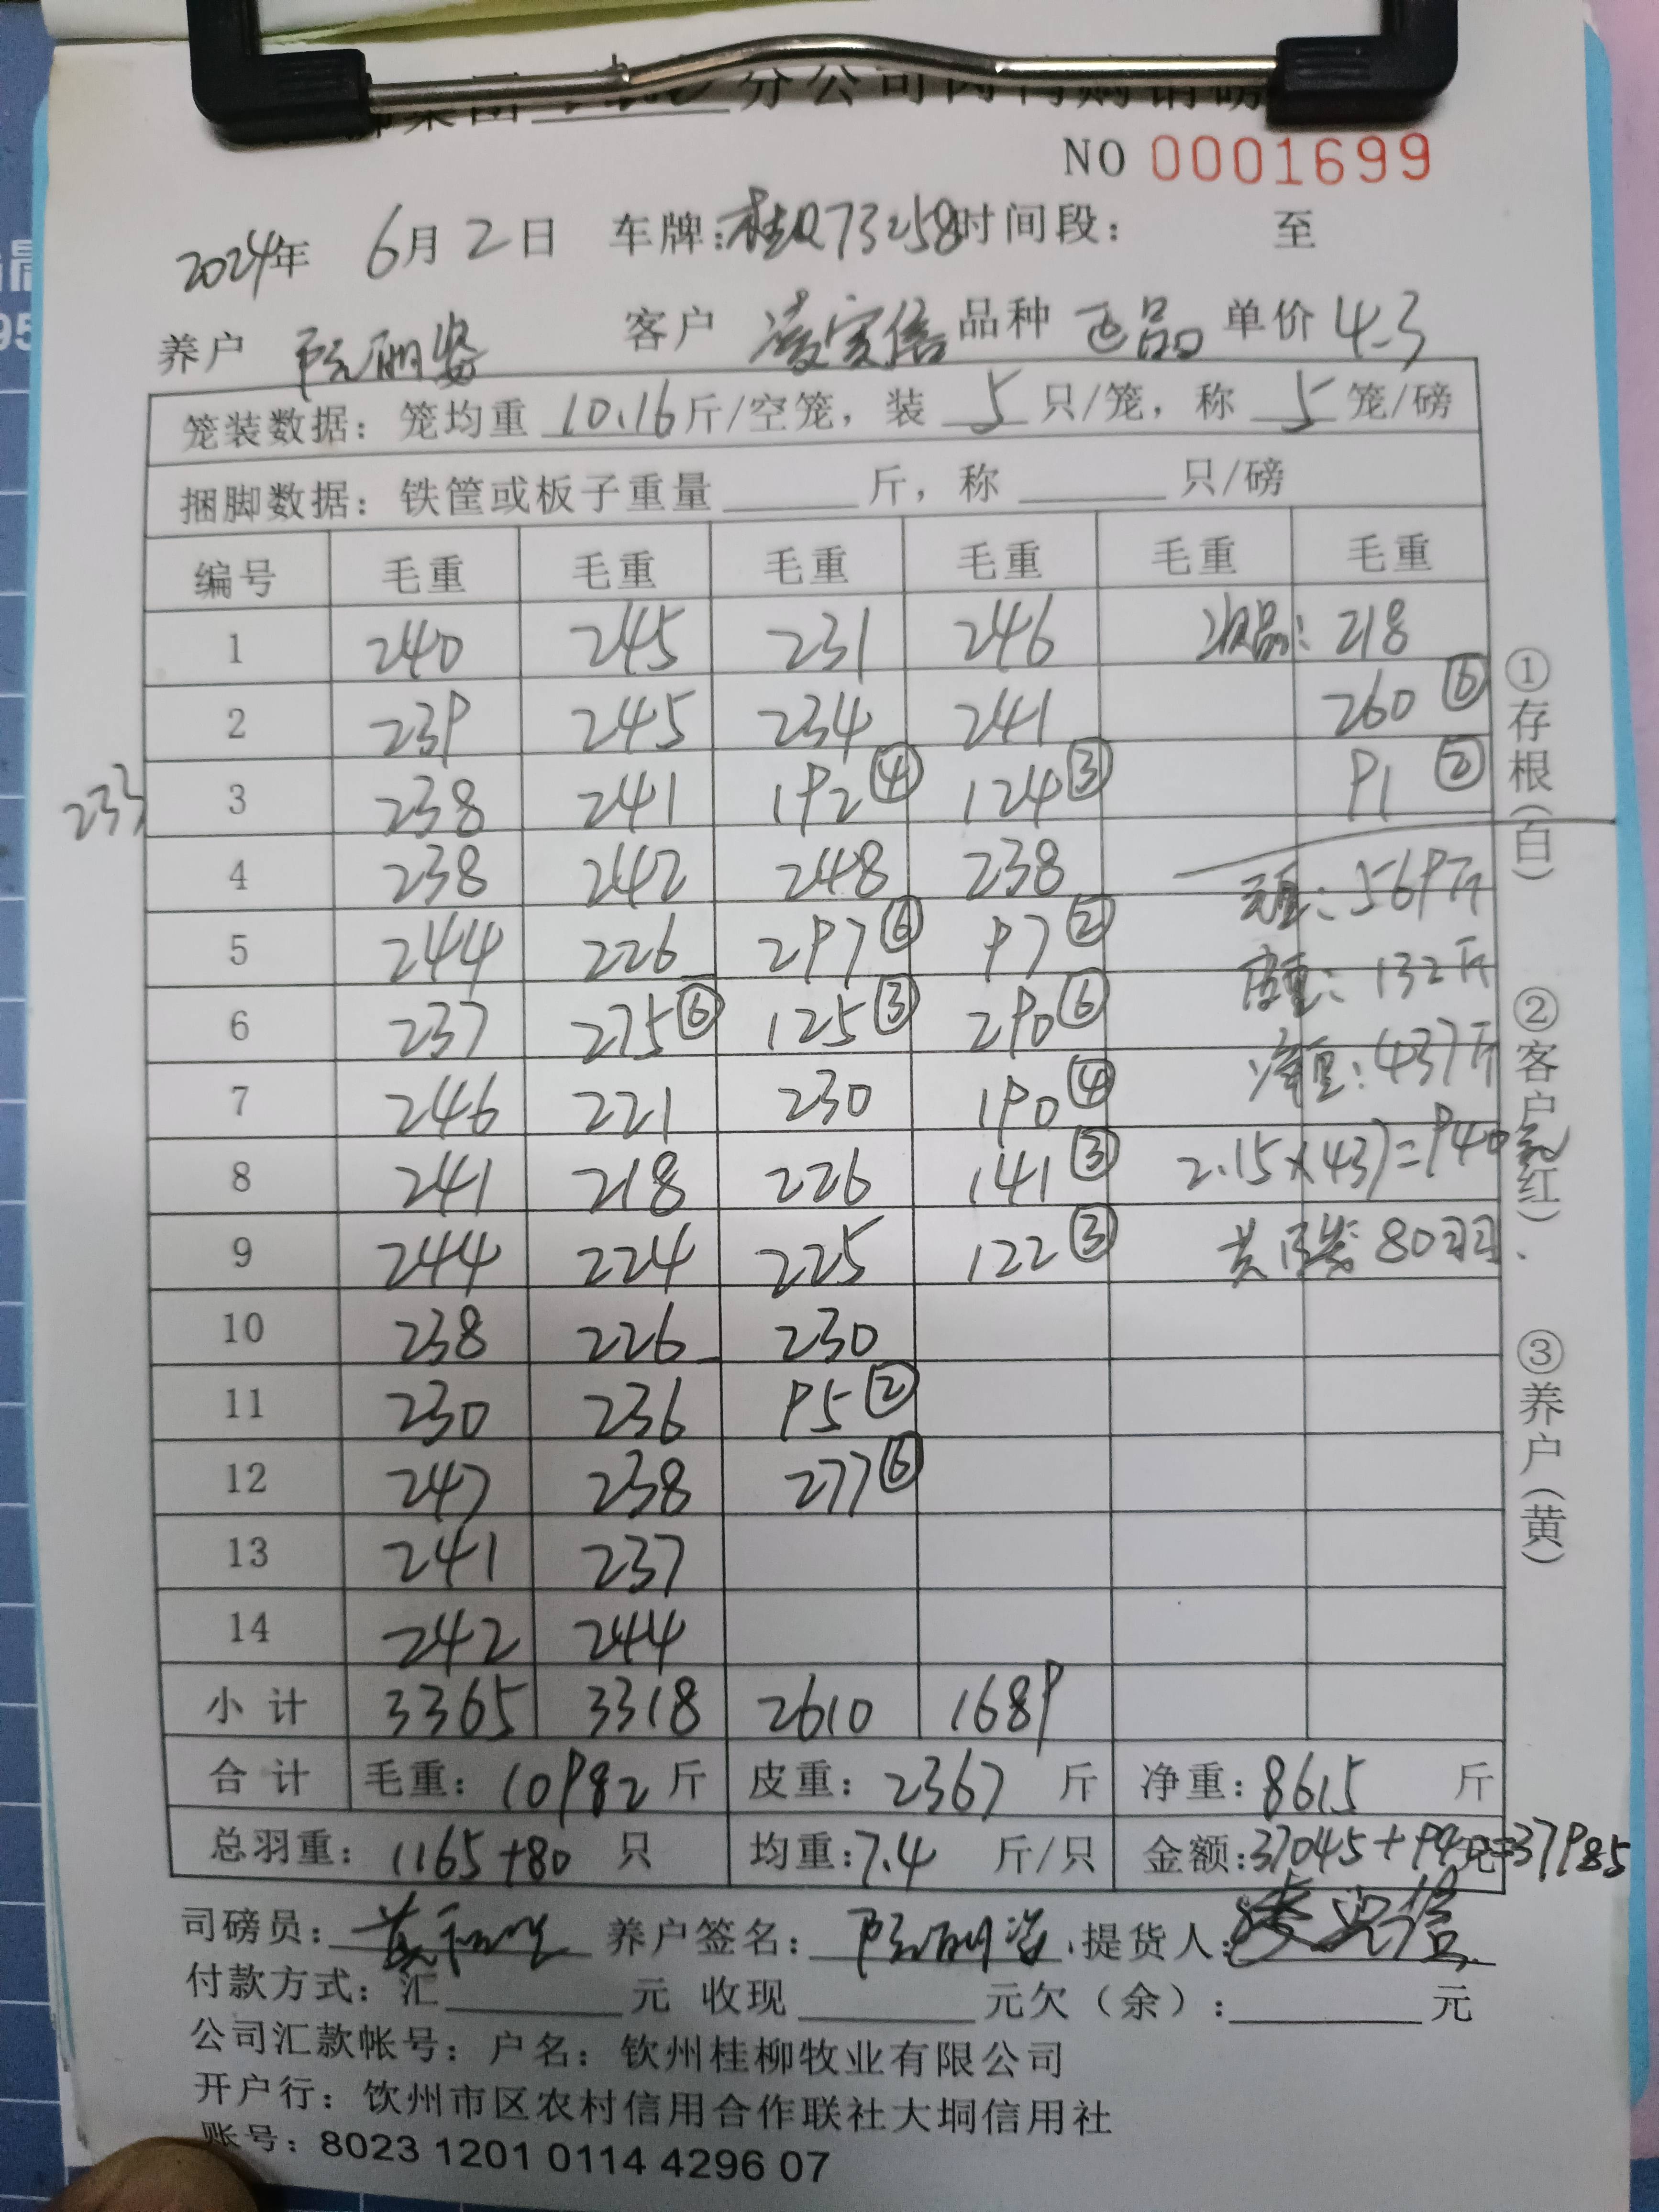 分公司肉鸭购销磅
NO 0001699
2024年 6月2日 车牌:桂Q73258 时间段: 至
养户 客户 凌宝信 品种 正品 单价 4.3
笼装数据: 笼均重 10.16 斤/空笼, 装 5 只/笼, 称 5 笼/磅
捆脚数据: 铁筐或板子重量 斤, 称 只/磅
编号 毛重 毛重 毛重 毛重 毛重 毛重
1 240 245 231 246 次品: 218
2 239 245 234 241 260 ⑥
233 3 238 241 192 ④ 124 ③ 91 ②
4 238 242 248 238 毛重: 569斤
5 244 226 297 ⑥ 97 ② 皮重: 132斤
6 237 275 ⑥ 125 ③ 290 ⑥ 净重: 437斤
7 246 221 230 190 ④
8 241 218 226 141 ③ 2.15×437=940元
9 244 224 225 122 ③ 80羽.
10 238 226 230
11 230 236 95 ②
12 247 238 277 ⑥
13 241 237
14 242 244
小计 3365 3318 2610 1689
合计 毛重: 10982 斤 皮重: 2367 斤 净重: 8615 斤
总羽重: 1165+80 只 均重: 7.4 斤/只 金额: 37045+940元=37985
司磅员: 养户签名: 提货人:
付款方式: 汇 元 收现 元欠(余): 元
公司汇款帐号: 户名: 钦州桂柳牧业有限公司
开户行: 钦州市区农村信用合作联社大垌信用社
账号: 8023 1201 0114 4296 07
①存根(白) ②客户(红) ③养户(黄)